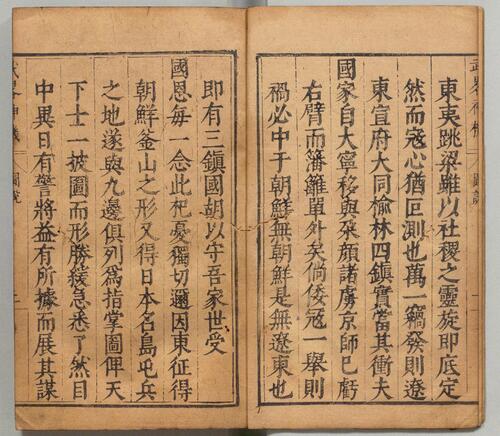 東夷跳梁雖以社稷之靈旋即底定
然而寇心猶叵測也萬一竊發則遼
東宣府大同榆林四鎮實當其衝夫
國家自大寧移與朶顏諸虜京師已虧
右臂而籓籬單外矣倘倭寇一舉則
禍必中于朝鮮無朝鮮是無遼東也
即有三鎮國朝以守吾家世受
國恩每一念此杞憂獨切邇因東征得
朝鮮釜山之形又得日本名島屯兵
之地遂與九邊俱列爲指掌圖俾天
下士一披圖而形勝緩急悉了然目
中異日有警將益有所據而展其謀
圖說